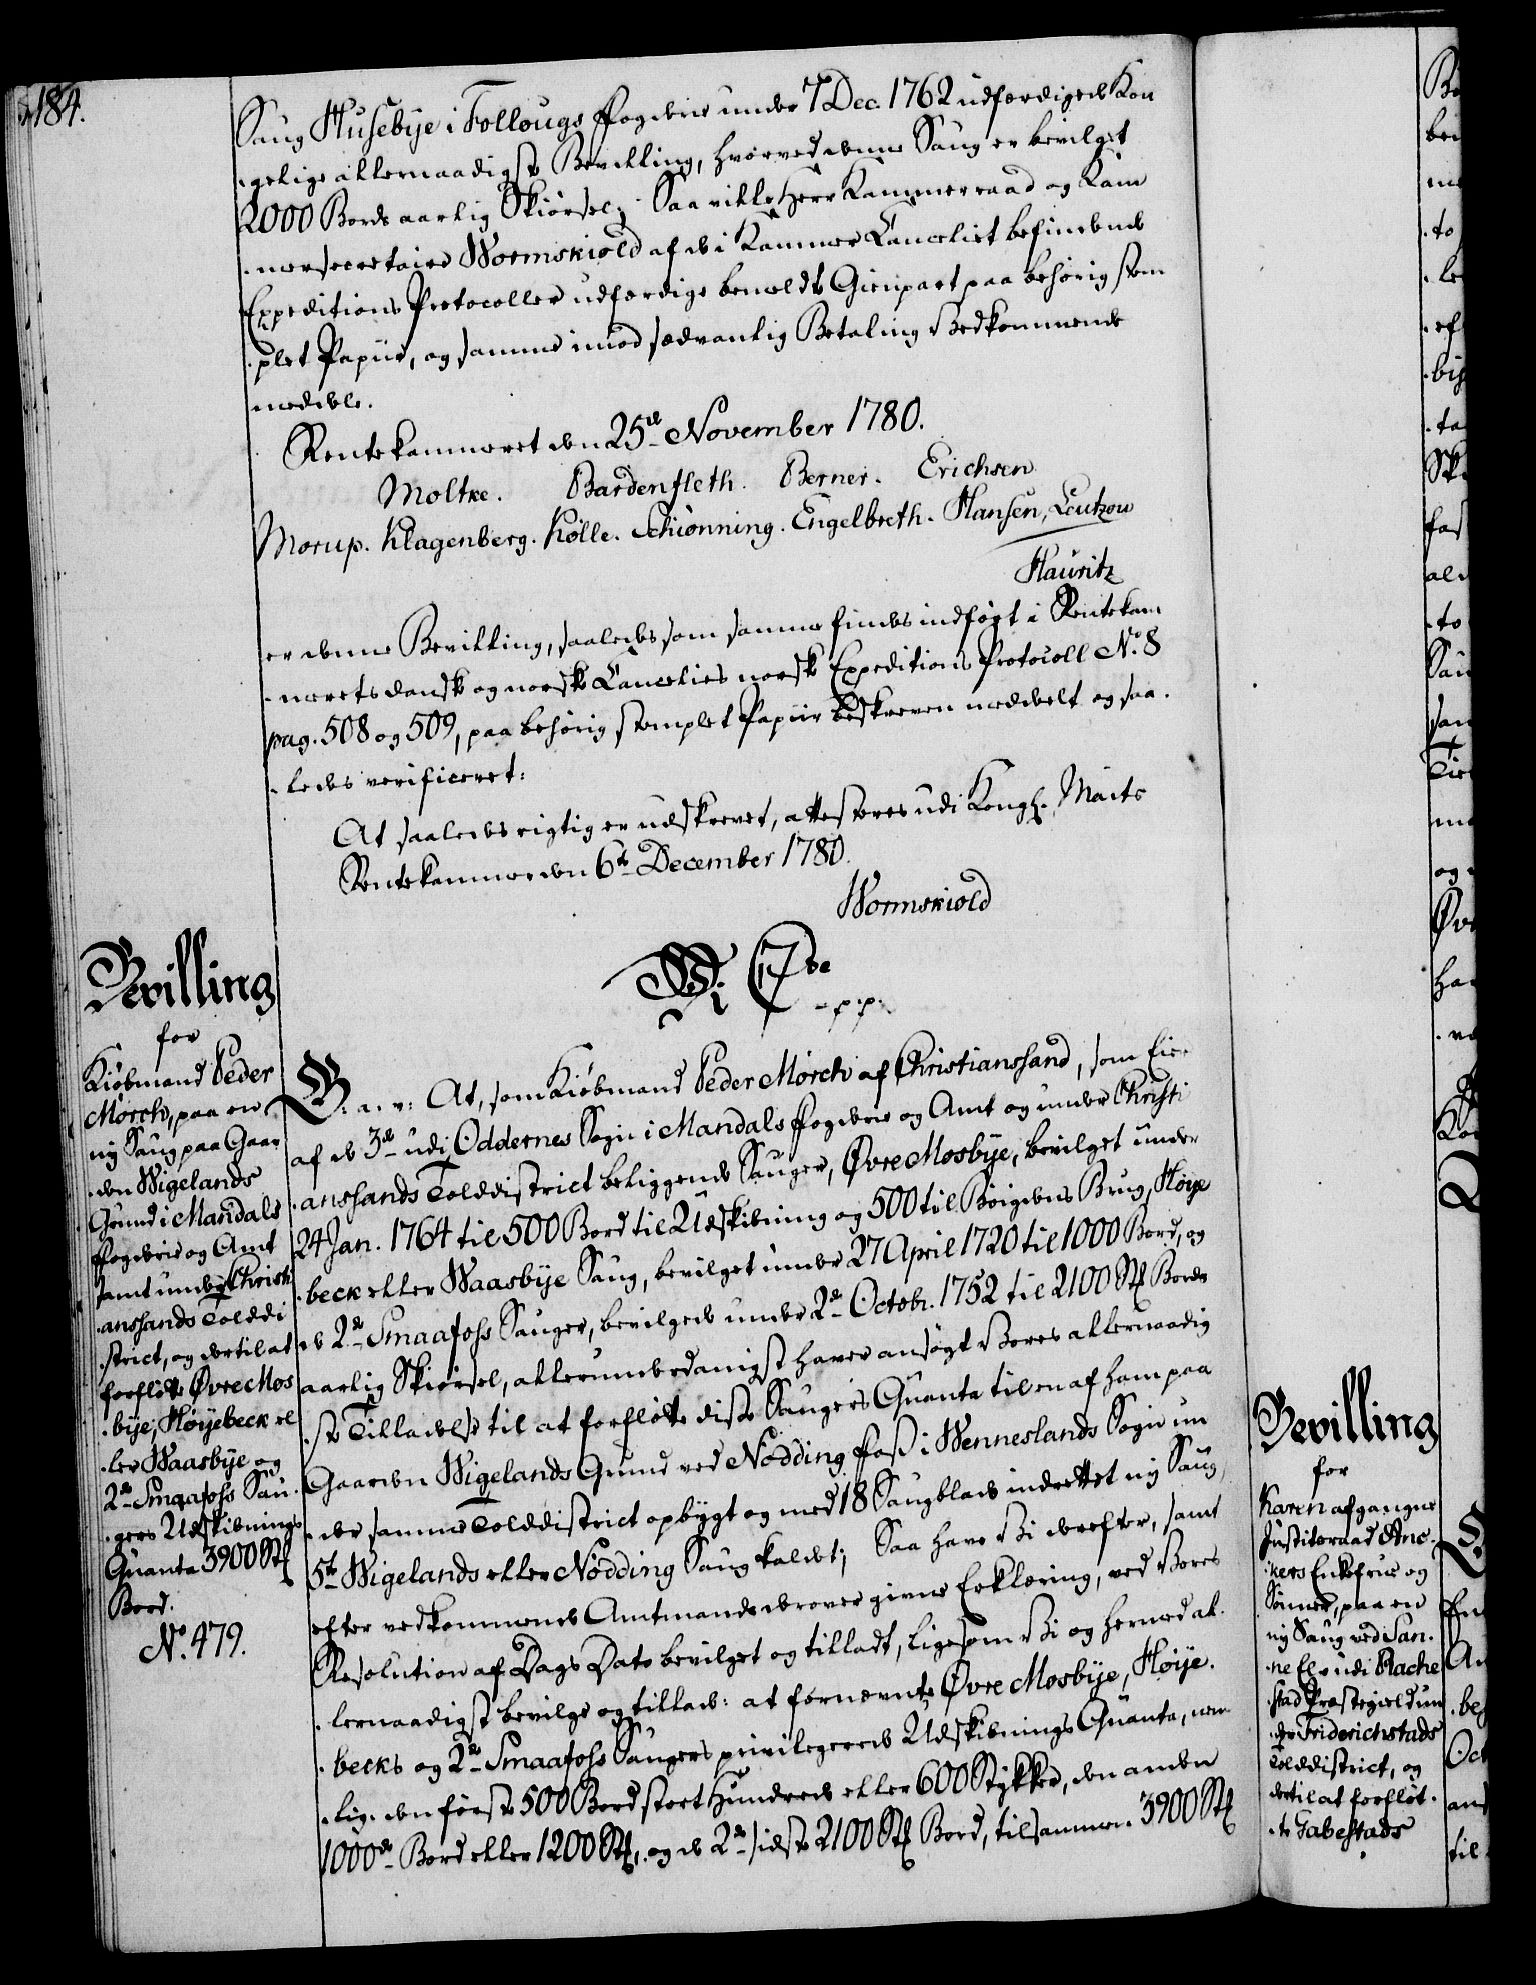 184.
Saug Husebye i Follougs Fogderie under 7 Dec. 1762 udfærdigede Kon
gelige allernaadigste Bevilling, hvorved denne Saug er bevilget
2000 Bords aarlig Skiørsel; Saa ville Herr Kammerraad og Kam
mersecretaire Wormskiold af de i Kammer Cancelliet befindende
Expeditions Protocoller udfærdige bemeldte Gienpart paa behørig stem
plet Papiir, og samme imod sædvanlig Betaling Vedkommende
meddele.
Rentekammeret den 25de November 1780.
Moltke. Bardenfleth. Berner. Erichsen
Morup. Klagenberg. Kølle. Schiønning. Engelbreth. Hansen, Leutzow
Hauritz
er denne Bevilling, saaledes som samme findes indført i Rentekam
merets danske og norske Cancelies norske Expeditions Protocoll No. 8
pag. 508 og 509, paa behørig stemplet Papiir beskreven meddelt og saa
ledes verificeret:
At saaledes rigtig er udskrevet, attesteres udi Kongl. Maits
Rentekammer den 6te December 1780.
Wormskiold
Wi C 7de
p.p.
Bevilling
for
Kiøbmand Peder
Mørch, paa en
ny Saug paa Gaar
den Wigelands
Grund i Mandals
Fogderie og Amt
samt under Christi
anssands Tolddi
strict, og dertil at
forfløtte Øvre Mos
bye, Høyebeck el
ler Waasbye og
2de Smaafoss Sau
gers Udskibnings
Quanta 3900 Stk
Bord.
No. 479.
G. a. v: At, som Kiøbmand Peder Mørch af Christianssand, som Eier
af de 3de udi Oddernes Sogn i Mandals Fogderie og Amt og under Christi
anssands Tolddistrict beliggende Sauger, Øvre Mosbye, bevilget under
24 Jan. 1764 til 500 Bord til Udskibning og 500 til Bøigdens Brug, Høye
beck eller Waasbye Saug, bevilget under 27 April 1720 til 1000 Bord, og
de 2de Smaafoss Sauger, bevilgede under 2de Octobr. 1752 til 2100 Stk Bords
aarlig Skiørsel, allerunderdanigst haver ansøgt Vores allernaadig
ste Tilladelse til at forfløtte disse Saugers Quanta til en af ham paa
Gaarden Wigelands Grund ved Nødding Foss i Wenneslands Sogn un
der samme Tolddistrict opbygt og med 18 Saugblade indrettet ny Saug,
5te Wigelands eller Nødding Saug kaldet; Saa have Vi derefter, samt
efter vedkommende Amtmands derover givne Erklæring, ved Vores
Resolution af Dags Dato bevilget og tilladt, ligesom Vi og hermed al
lernaadigst bevilge og tillade: at fornevnte Øvre Mosbye, Høye
becks og 2de Smaafoss Saugers privilegerede Udskibnings Quanta, nem
lig. den første 500 Bord stort Hundrede eller 600 Stykker, den anden
1000de Bord eller 1200 Stk, og de 2de sidste 2100 Stk Bord, tilsammen 3900 Stk
Bevilling
for
Karen afgangne
Justitsraad Anc
kers Enkefrue og
Sønner, paa en
ny Saug ved San
ne Elv udi Rache
stad Præstegield un
der Friderichstads
Tolddistrict, og
dertil at forfløt
te Gabestads